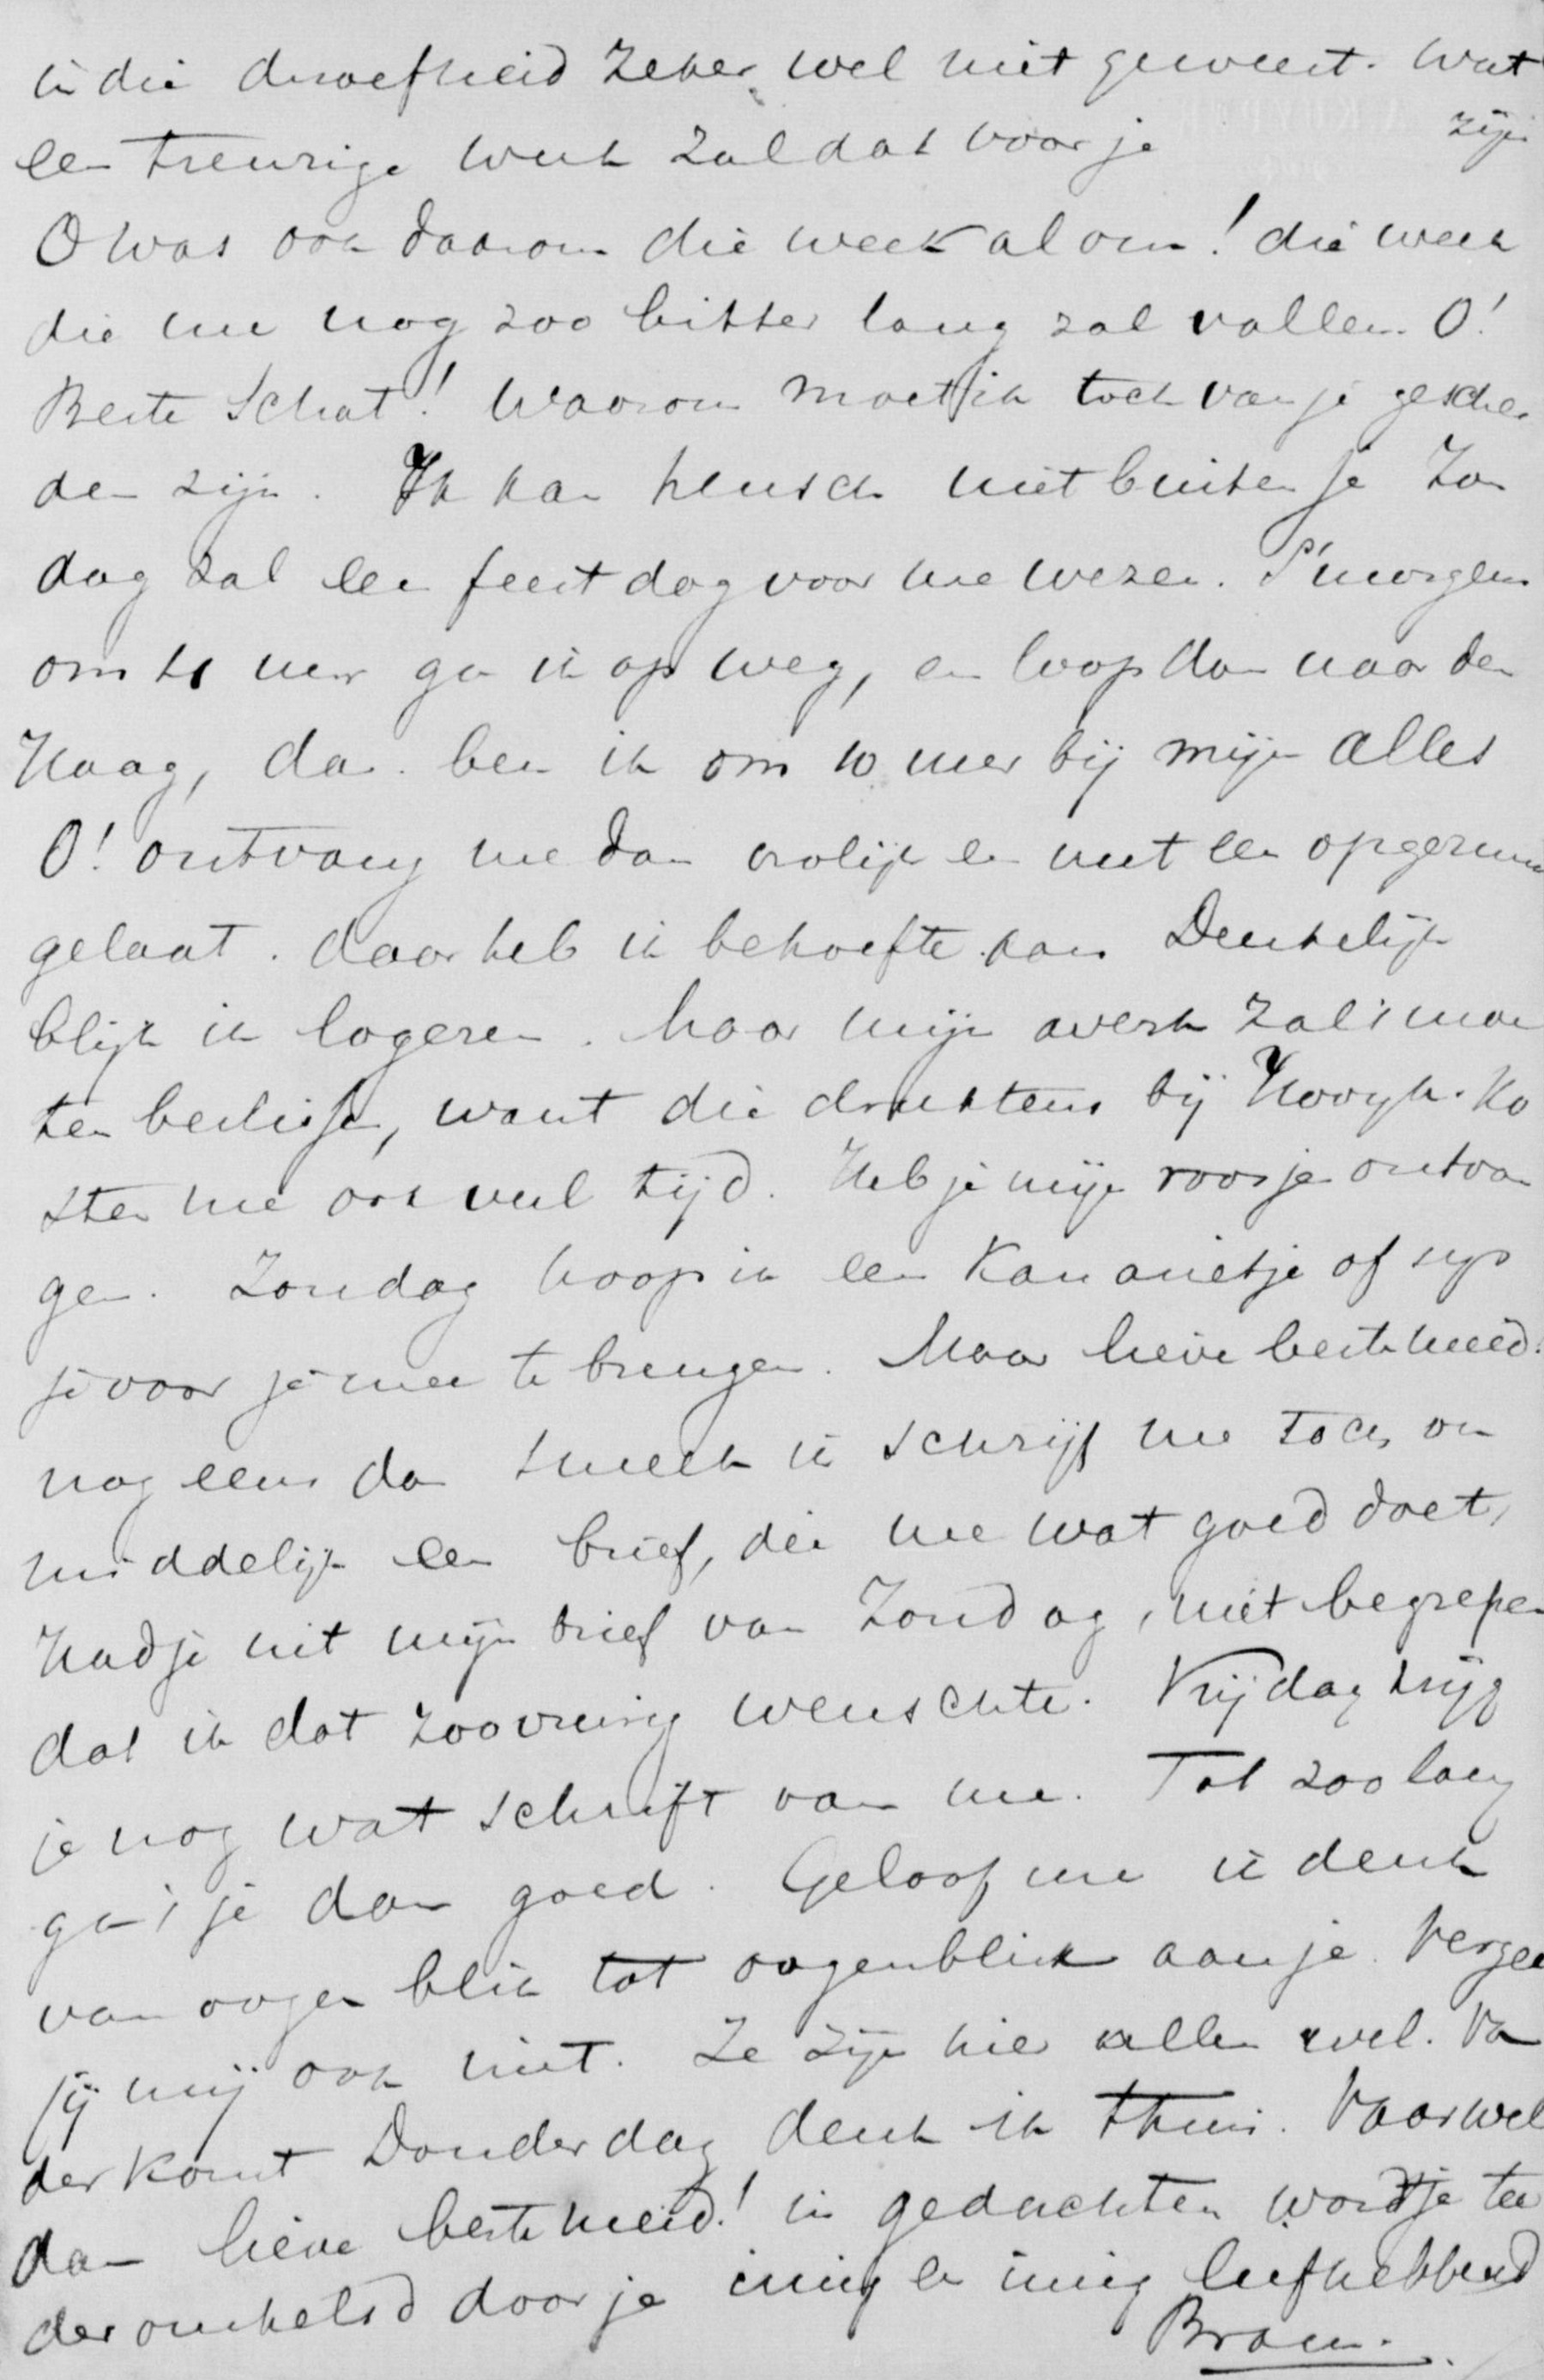 in die droefheid zeker wel niet geweest. Wat
een treurige week zal dat voor je zijn
O was ook daarom die week al om! die week
die me nog zoo bitter lang zal vallen. O!
Beste Schat! Waarom moet ik toch van je geschei
den zijn. Ik kan heusch niet buiten je Zon
dag zal een feestdag voor me wezen. S'morgens
om uur ga ik op weg, en loop dan naar den
Haag, dan ben ik om 10 uur bij mijn alles
O! ontvang me dan vrolijk en met een opgeruimd
gelaat. daar heb ik behoefte aan. Denkelijk
blijk ik logeren. Maar mijn werk zal 's moe
ten beslissen, want die druktens bij Hooyk. Ko
sten me ook veel tijd. Heb je mijn roosjen ontvan
gen. Zondag hoop ik een Kanarietje of sijs
je voor je mee te brengen. Maar lieve beste meid!
nog eens dan smeek ik schrijf me toch on
middelijk een brief, die me wat goed doet,
Had je uit mijn brief van Zondag, niet begrepen
dat ik dat zoo vreing wenschte. Vrijdag krijg
je nog wat schrift van me. Tot zoo lang
ga 't je dan goed. Geloof me ik denk
van oogenblik tot oogenblik aan je. Vergeet
jij mij ook niet. Ze zijn hier allen wel. Va
der komt Donderdag denk ik thuis. Vaarwel
dan lieve beste meid! in gedachten wordt je tee
der omhelsd door je innig en innig liefhebbend
Bram.